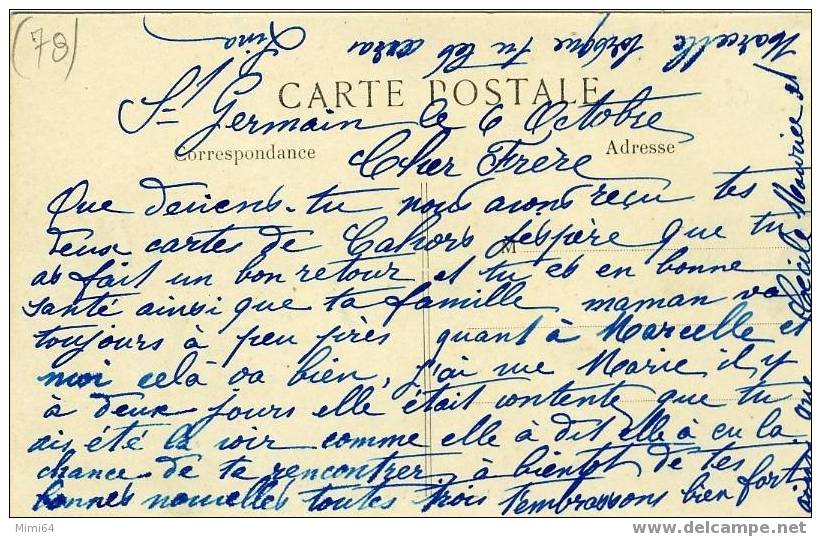 (78)
CARTE POSTALE
St Germain le 6 Octobre
Correspondance
Adresse
Cher Frère
Que deviens-tu nous avons reçu tes
deux cartes de Cahors j'espère que tu
M
as fait un bon retour et tu es en bonne
santé ainsi que ta famille maman va
toujours à peu près quant à Marcelle et
moi celà va bien, j'ai vue Marie il y
à deux jours elle était contente que tu
ais été la voir comme elle à dit elle à eu la
chance de ta rencontrer, à bientot de tes
bonnes nouvelles toutes trois t'embrassons bien fort
ainsi que Cécile Maurice et
Marcelle lorsque tu les
Lina
Mimi64
www.delcampe.net